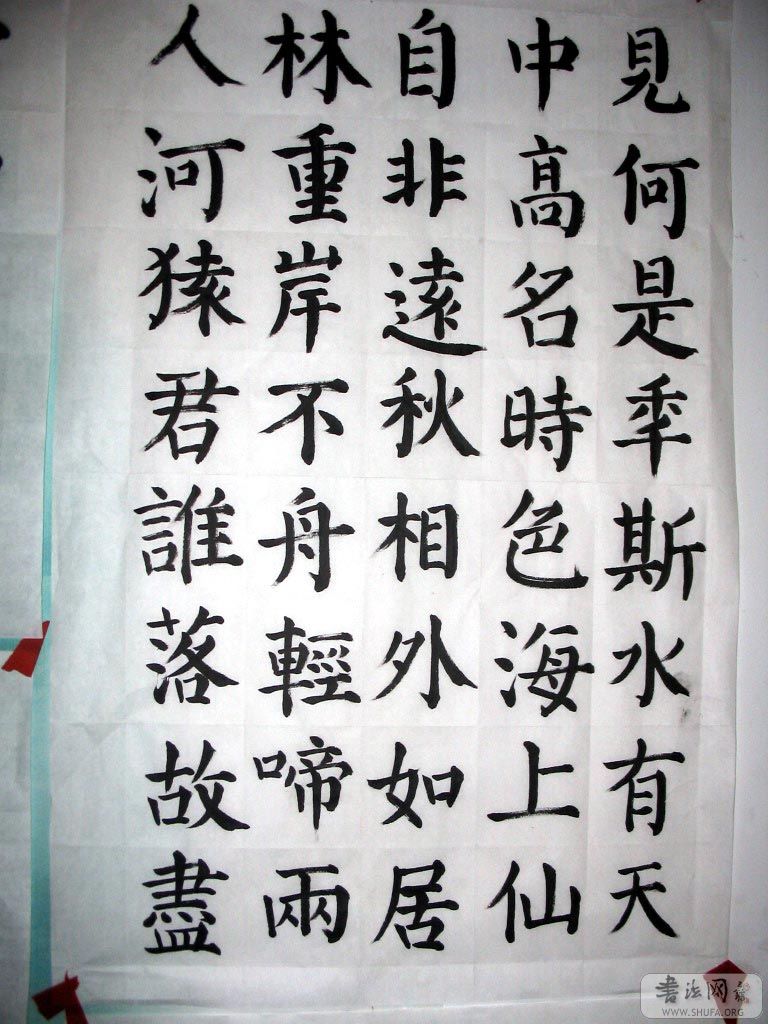 見何是年斯水有天
中高名時色海上仙
自非遠秋相外如居
林重岸不舟輕啼兩
人河猿君誰落故盡
书法网
WWW.SHUFA.ORG